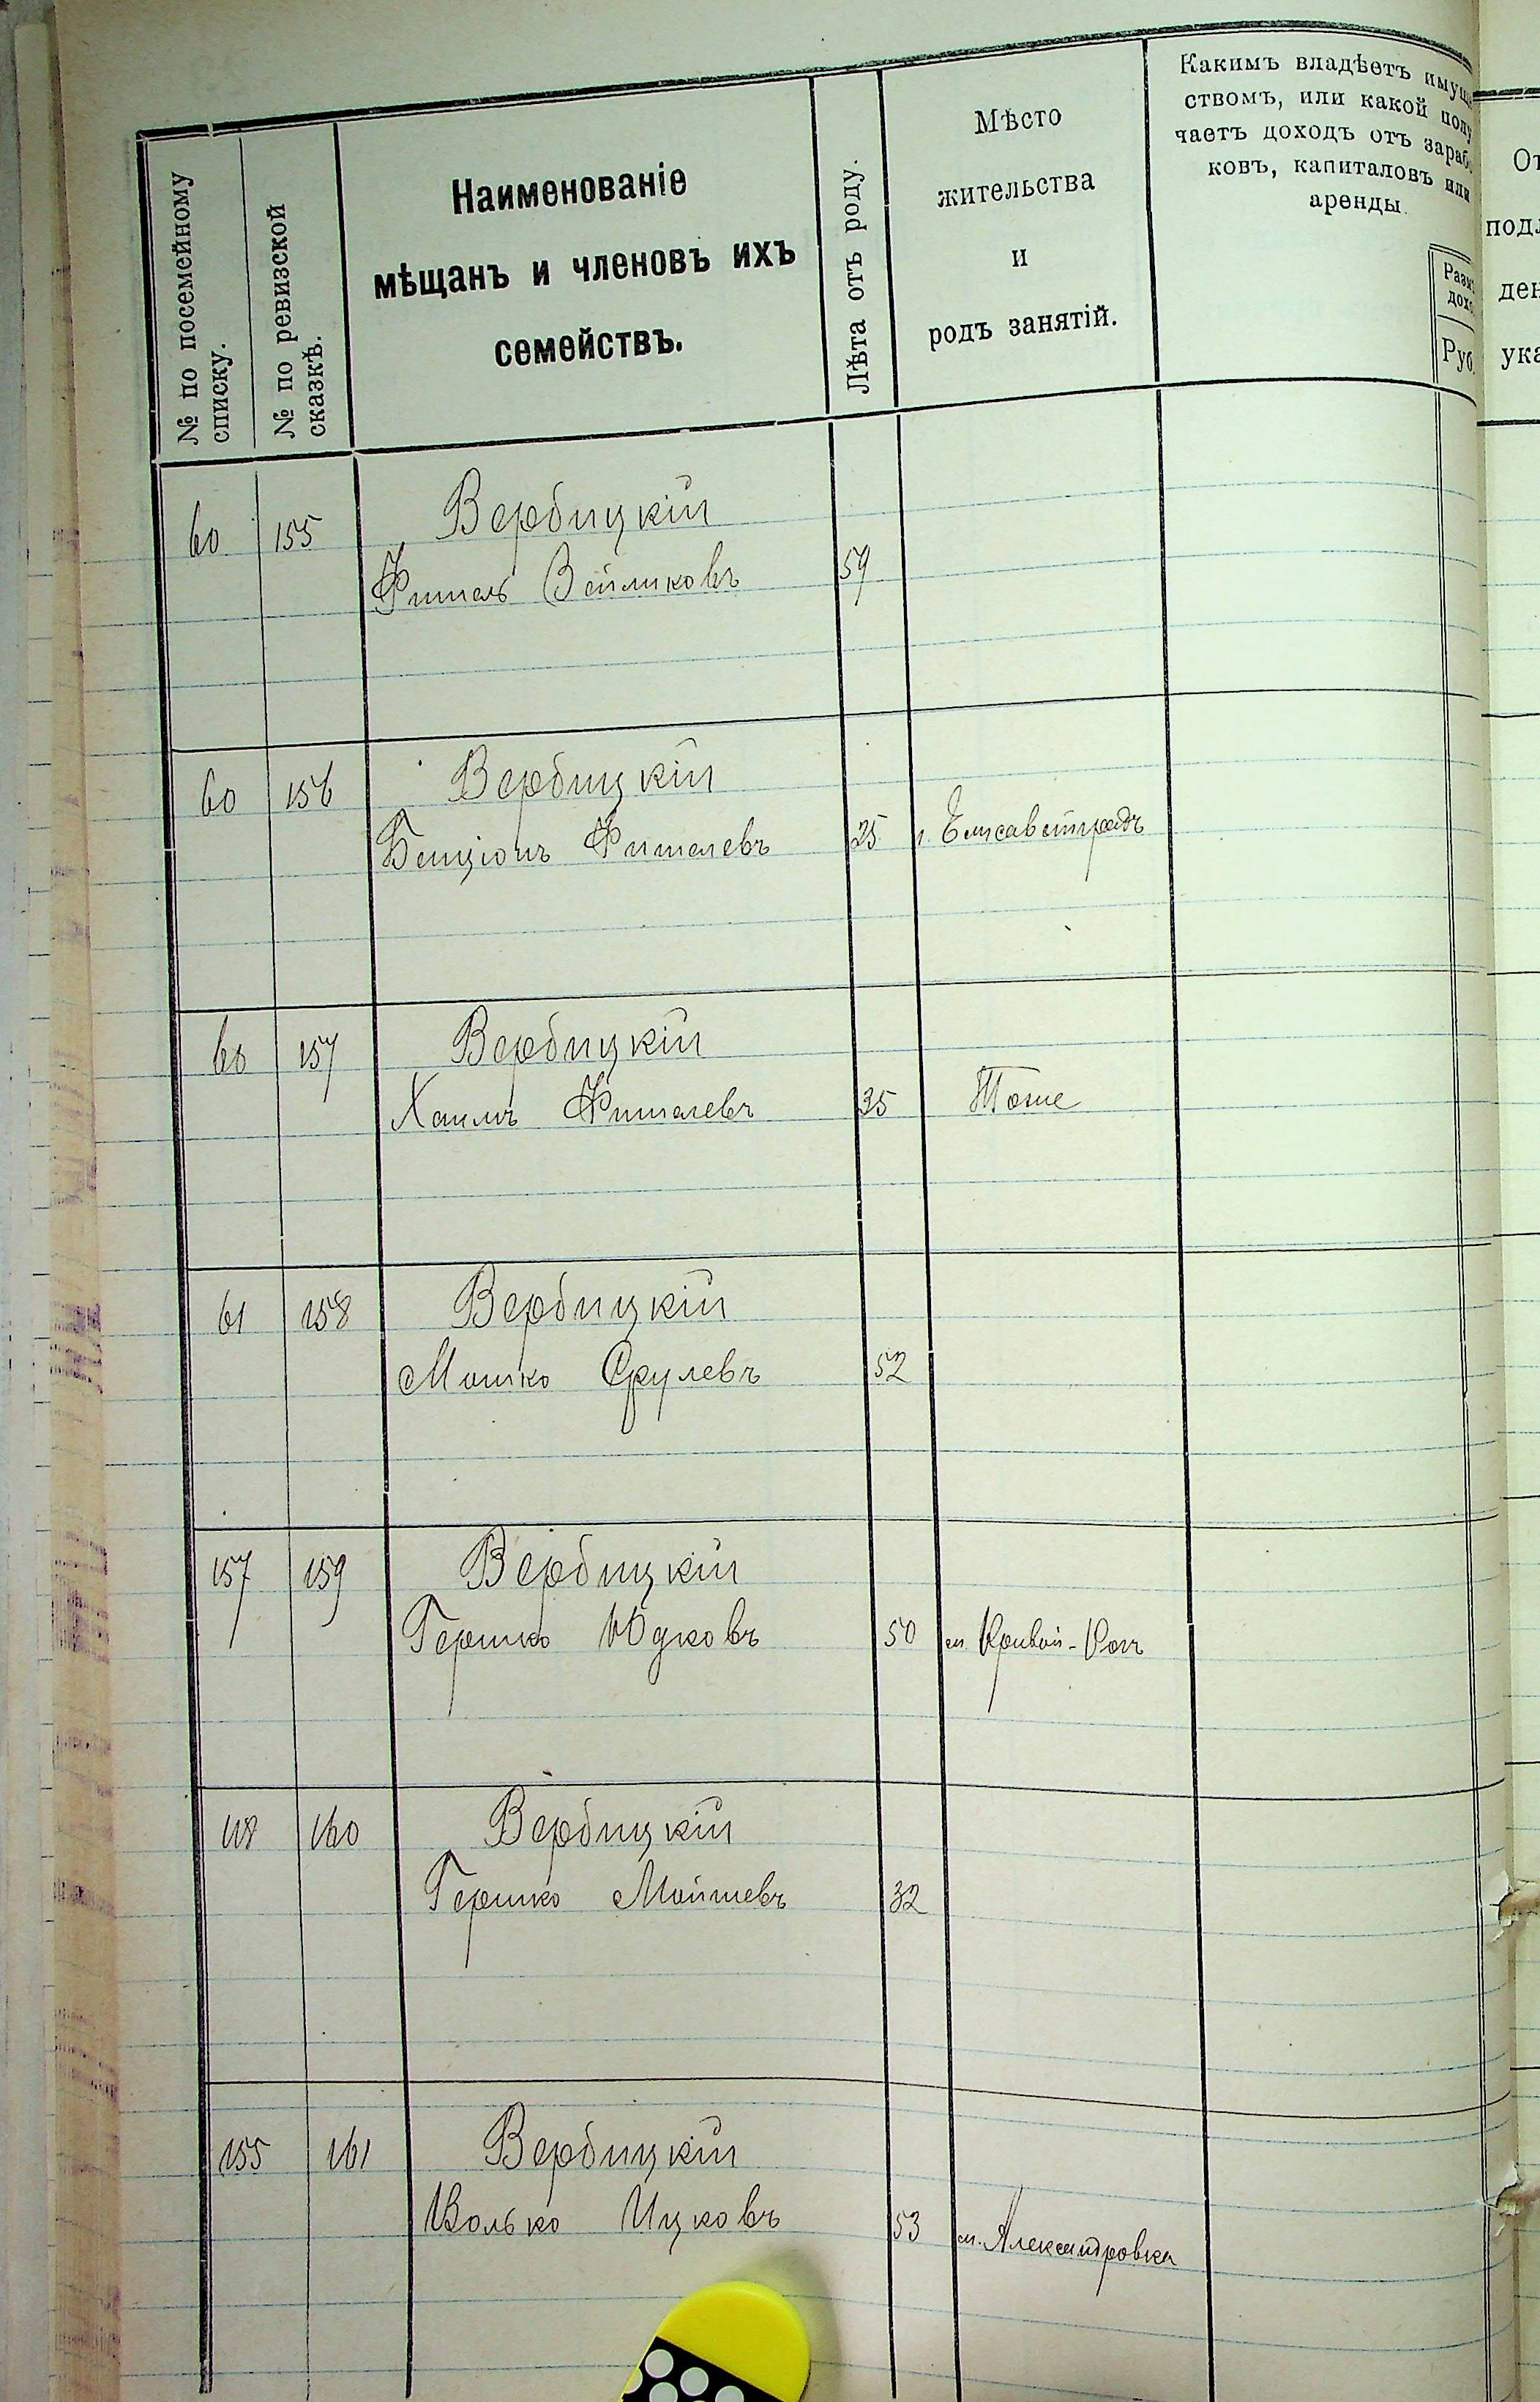 № по посемейному
списку.
№ по ревизской
сказкѣ.
Наименованіе
мѣщанъ и членовъ ихъ
семействъ.
Лѣта отъ роду.
Мѣсто
жительства
и
родъ занятій.
Какимъ владѣетъ имуще
ствомъ, или какой полу
чаетъ доходъ отъ зарабо
ковъ, капиталовъ или
аренды.
Руб.
60 155 Вербицкій
Фишель Зейликовъ 59
60 156 Вербицкій
Бенціонъ Фишелевъ 25 г. Елисаветградъ
60 157 Вербицкій
Хаимъ Фишелевъ 35 Тоже
61 158 Вербицкій
Мошко Срулевъ 52
157 159 Вербицкій
Гершко Юдковъ 50 м. Кривой-Рогъ
118 160 Вербицкій
Гершко Мойшевъ 32
155 161 Вербицкій
Волько Ицковъ 53 м. Александровка